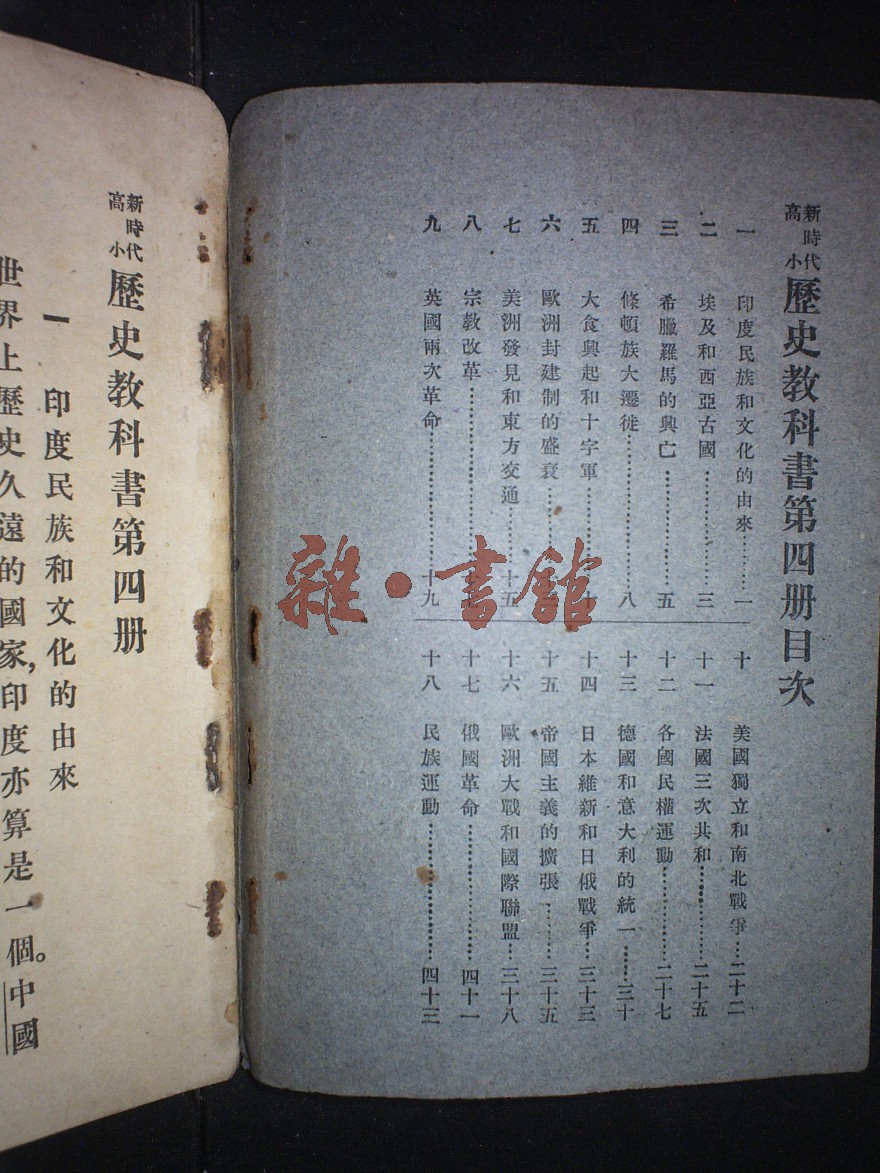 新時代
高小
歷史教科書第四册目次
一 印度民族和文化的由來………一
二 埃及和西亞古國………三
三 希臘羅馬的興亡………五
四 條頓族大遷徙………八
五 大食興起和十字軍………十
六 歐洲封建制的盛衰………
七 美洲發見和東方交通………十五
八 宗教改革………
九 英國兩次革命………十九
十 美國獨立和南北戰爭…二十二
十一 法國三次共和………二十五
十二 各國民權運動………二十七
十三 德國和意大利的統一……三十
十四 日本維新和日俄戰爭…三十三
十五 帝國主義的擴張………三十五
十六 歐洲大戰和國際聯盟…三十八
十七 俄國革命………四十一
十八 民族運動………四十三
新時代
高小
歷史教科書第四册
一 印度民族和文化的由來
世界上歷史久遠的國家，印度亦算是一個。中國
雜·書館